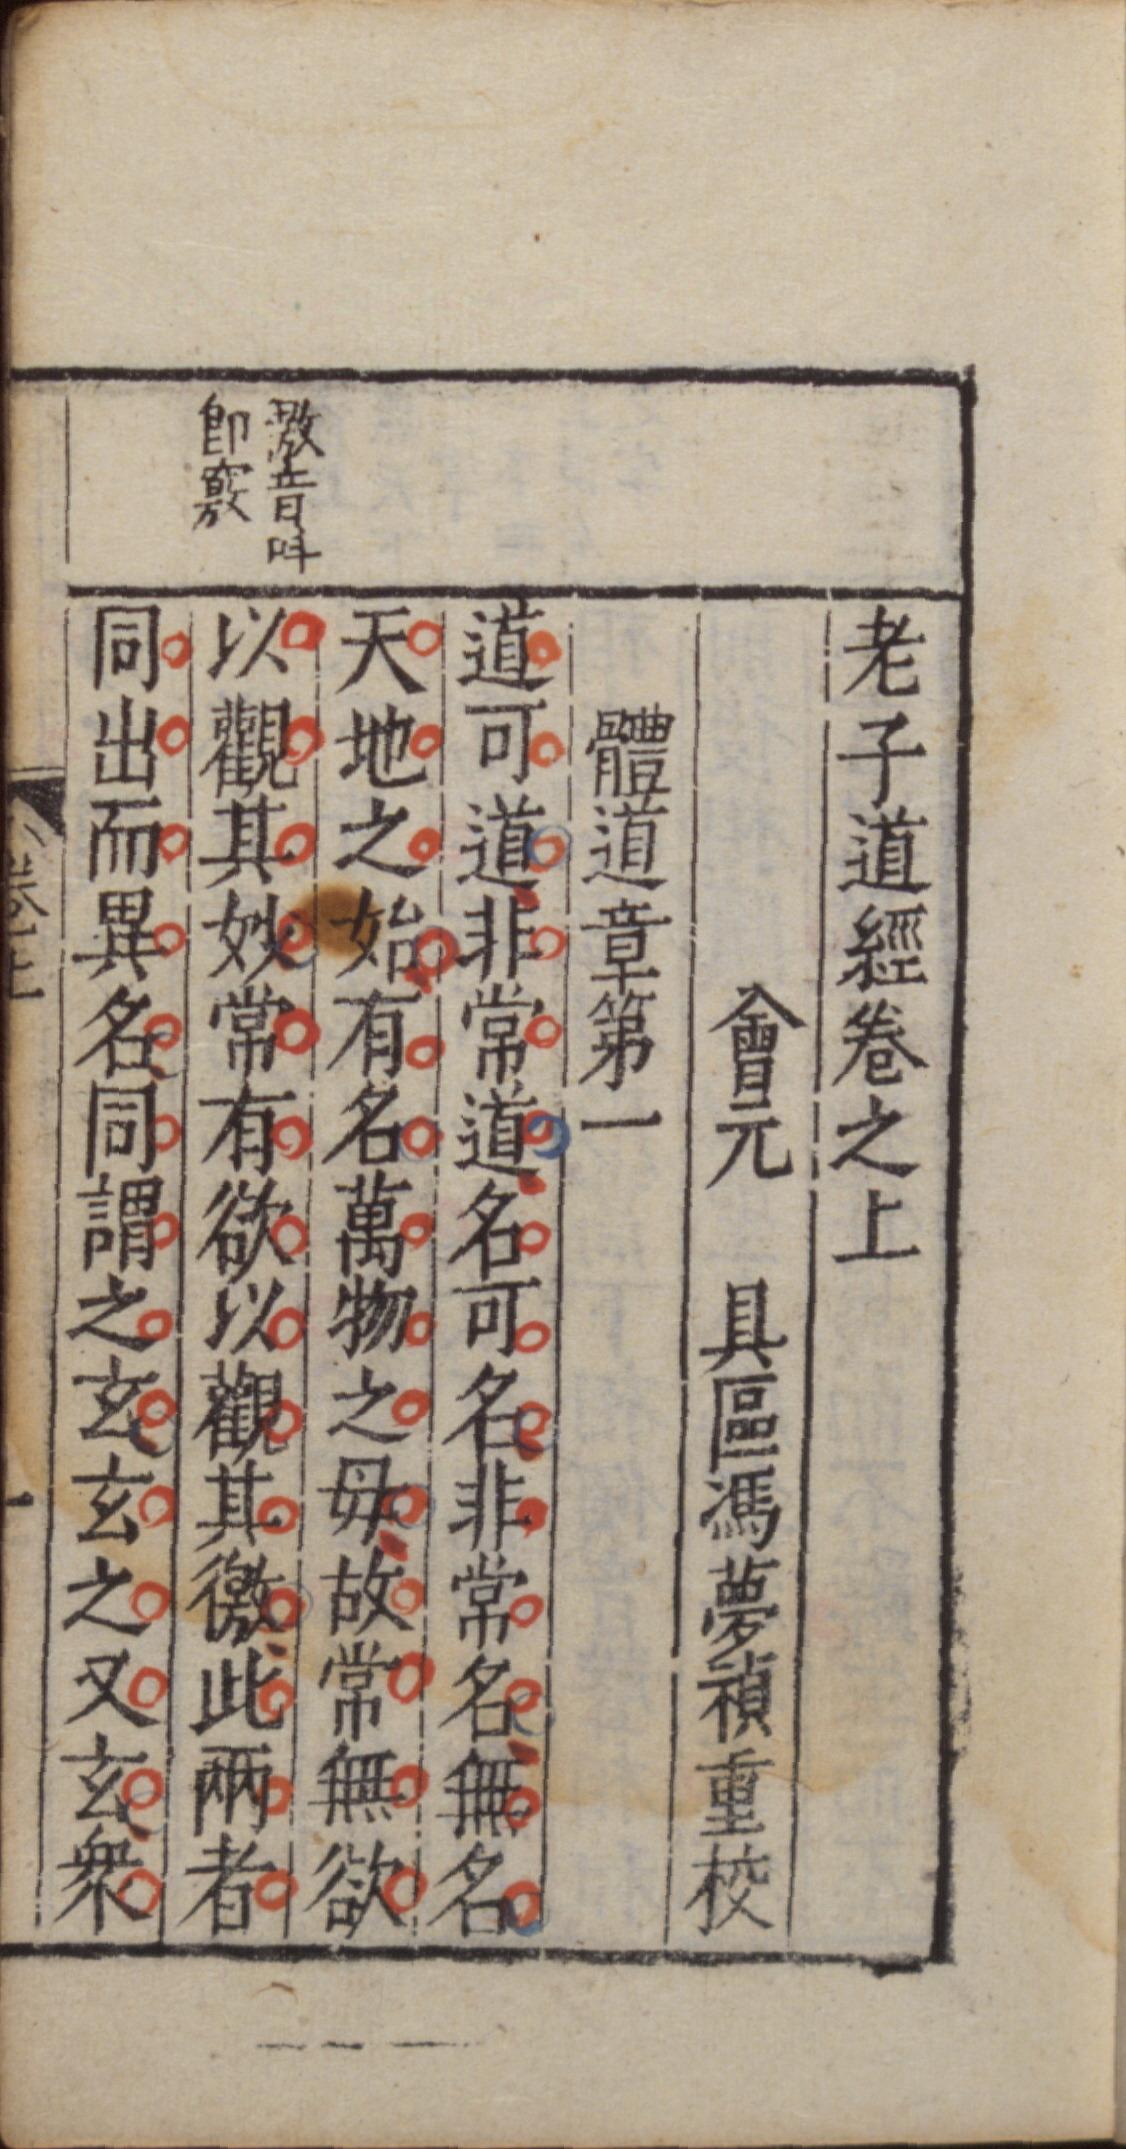 老子道經卷之上
會元　具區馮夢禎重校
體道章第一
道可道非常道名可名非常名無名
天地之始有名萬物之母故常無欲
以觀其妙常有欲以觀其徼此兩者
同出而異名同謂之玄玄之又玄衆
音呌
即竅
卷上
一